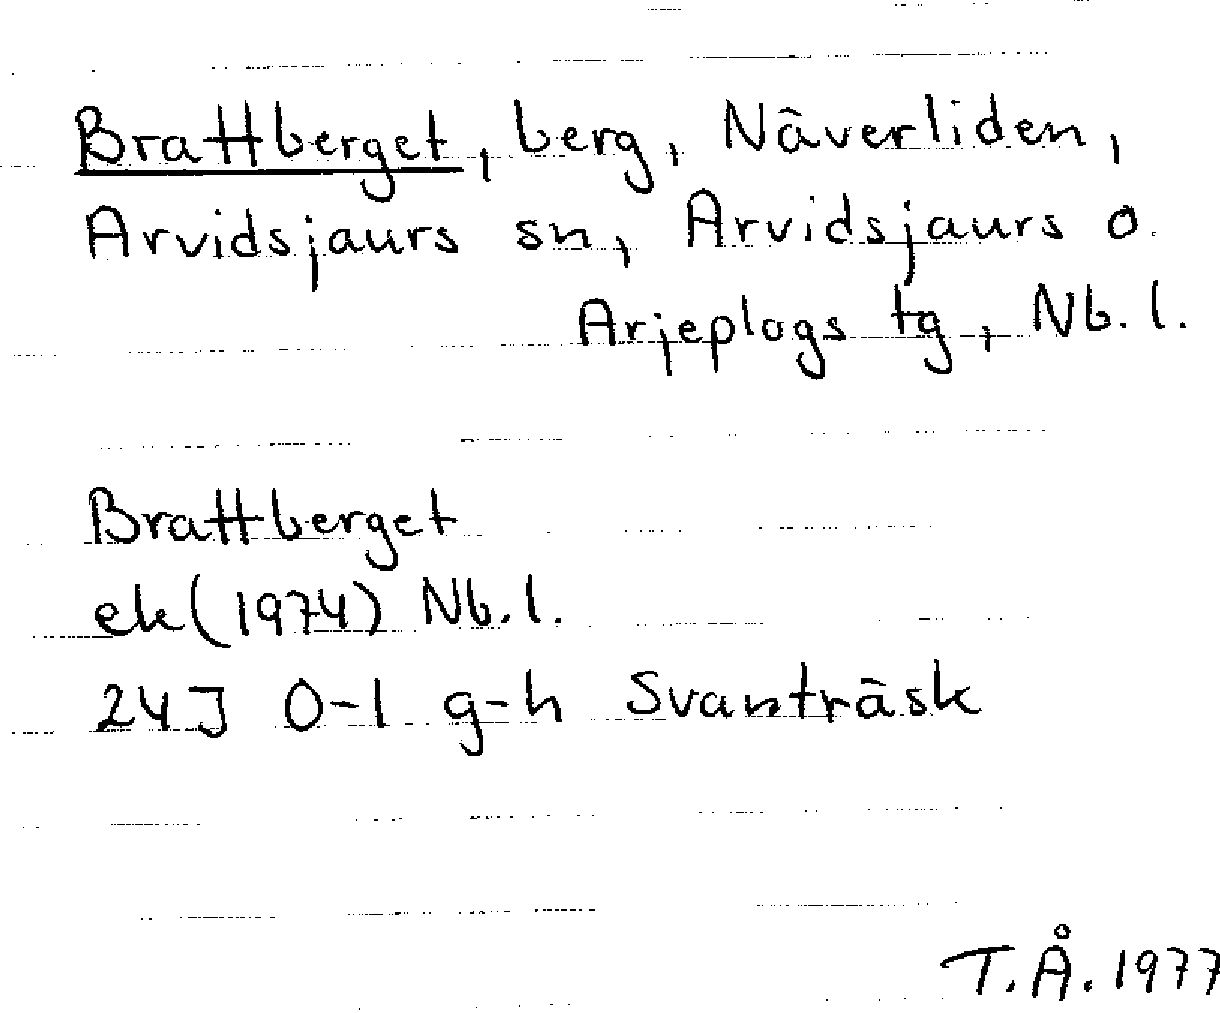 Brattberget, berg, Näverliden,
Arvidsjaurs sn, Arvidsjaurs o.
Arjeplogs tg, Nb. l.
Brattberget
ek (1974) Nb. l.
24J 0-1 g-h Svanträsk
T. Å. 1977